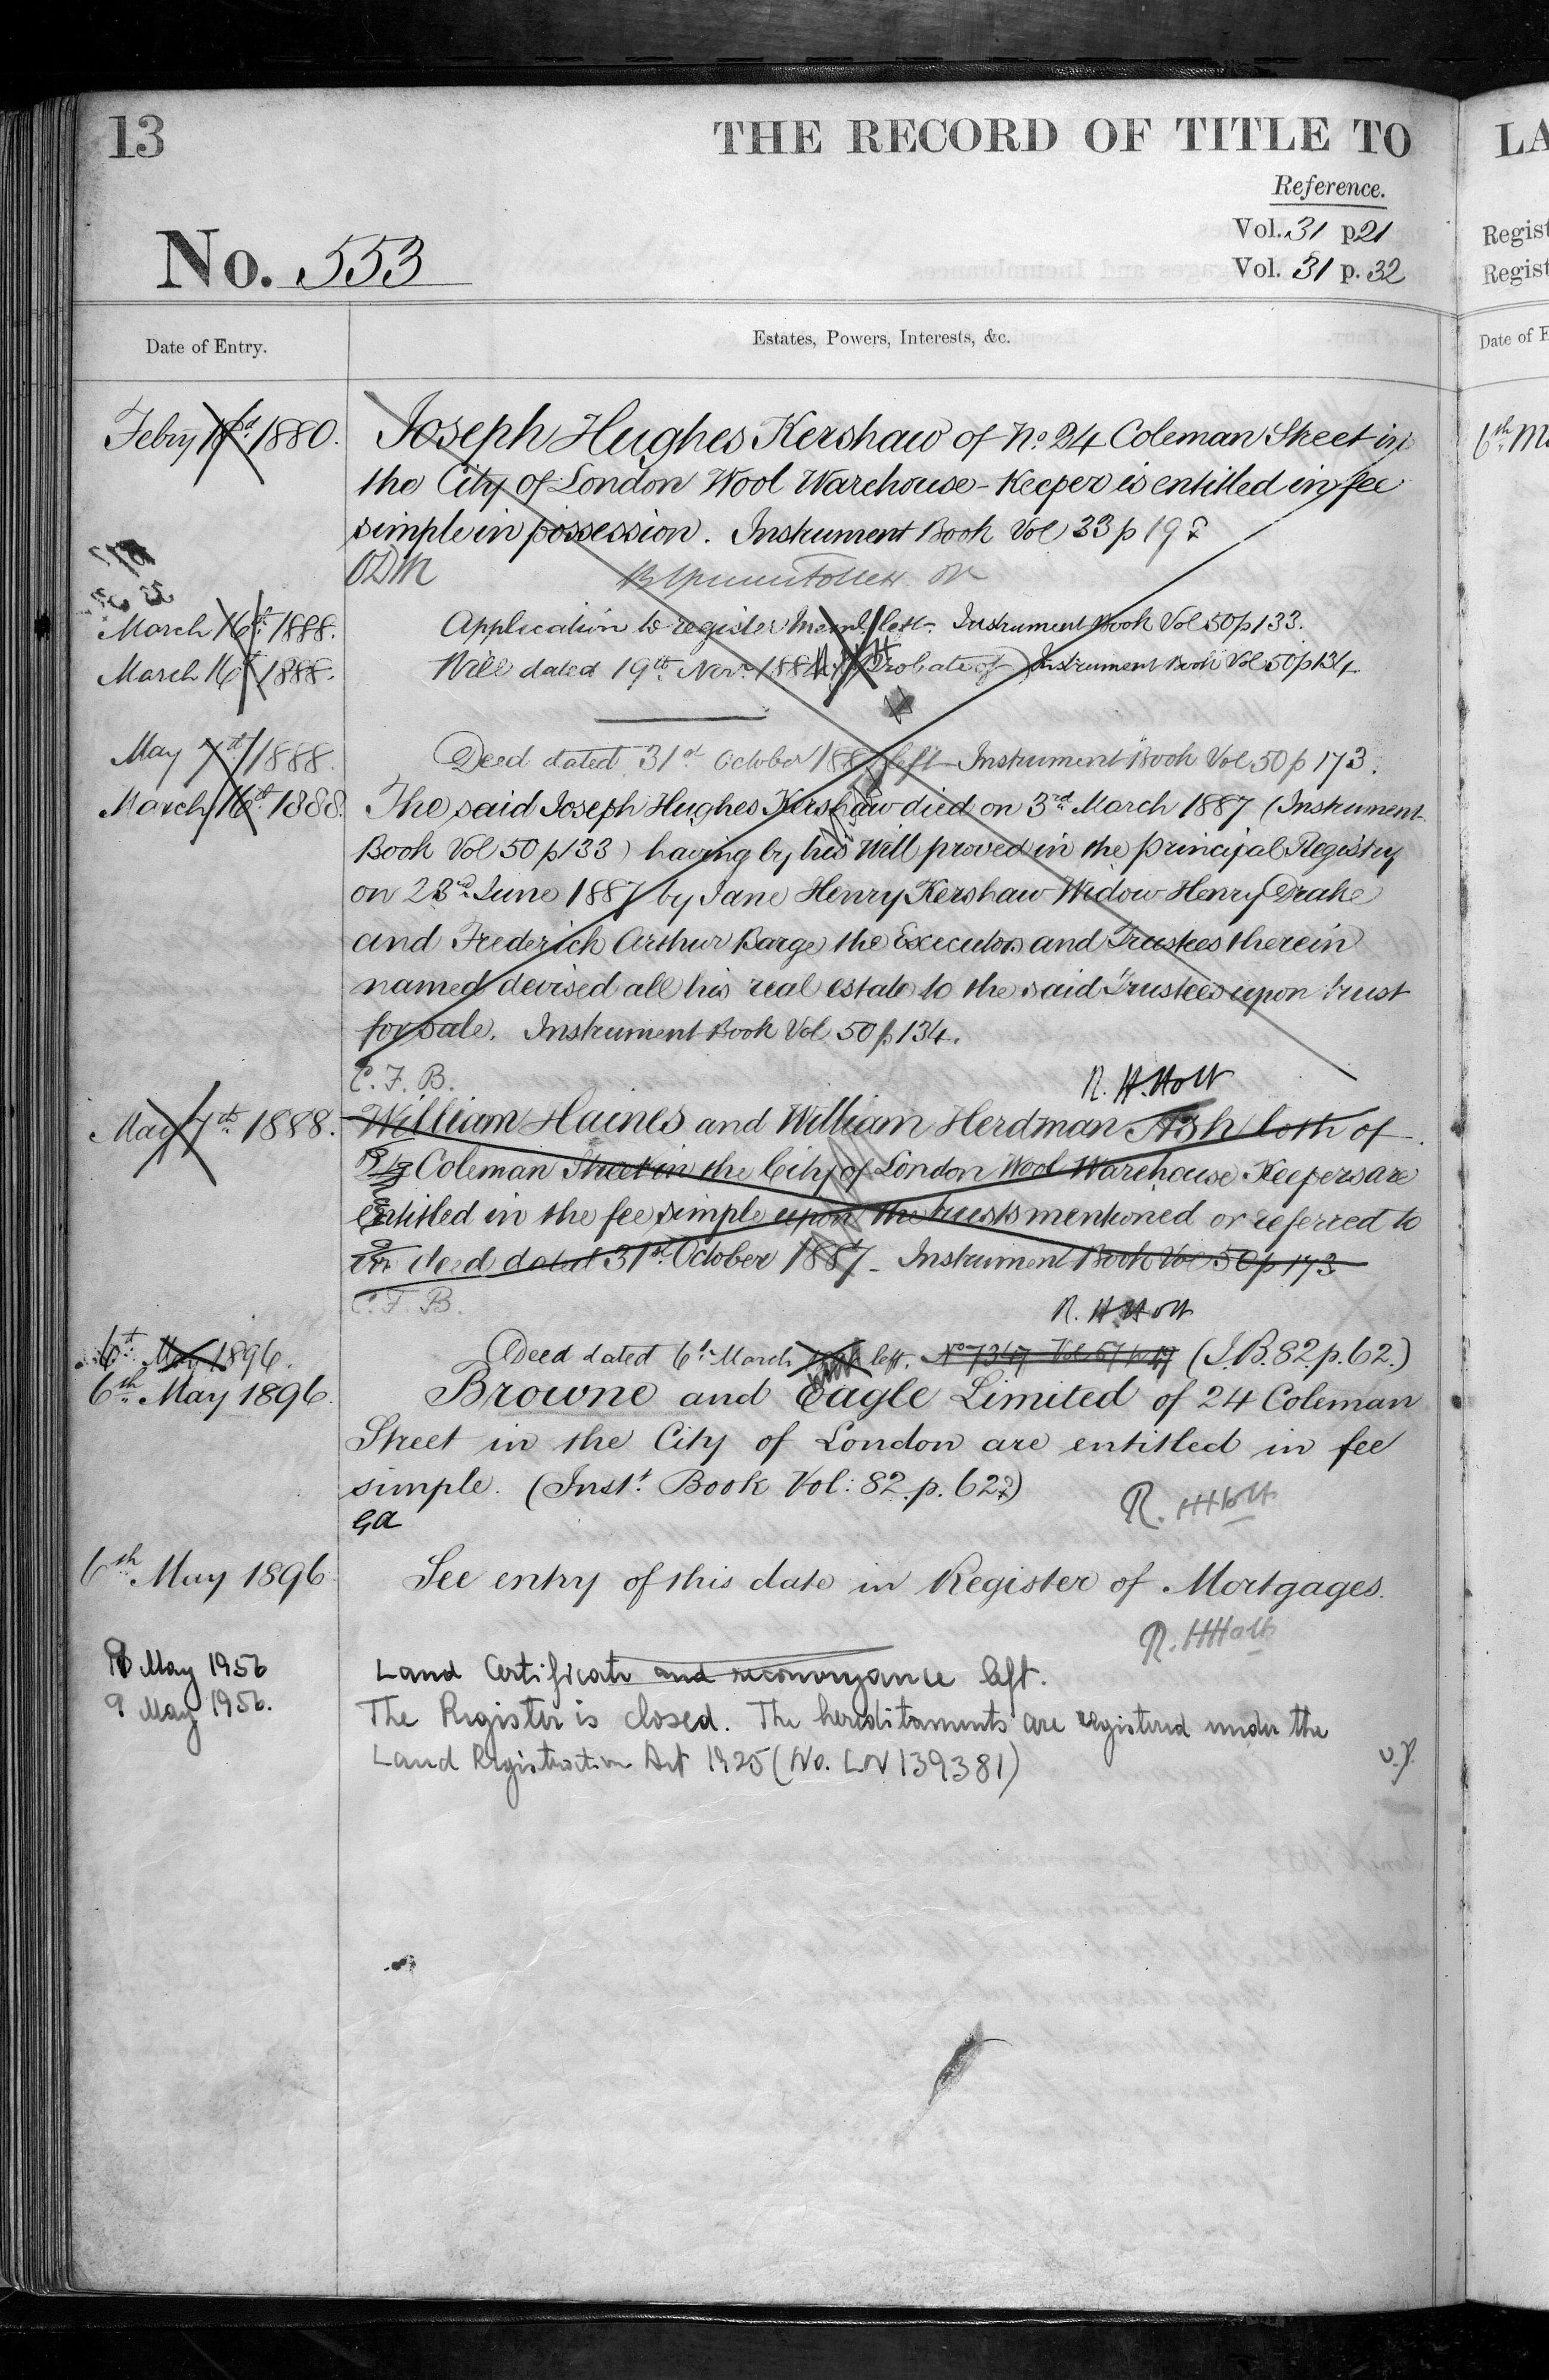 13
THE RECORD OF TITLE TO
LA
Reference.
Vol. 31 p 21
Vol. 31 p. 32
No. 553
Regist
Regist
Date of Entry.
Estates, Powers, Interests, &c.
Date of E
Febry 1880. Joseph Hughes Kershaw of No. 24 Coleman Street in
the City of London Wool Warehouse-Keeper is entitled in fee
simple in possession. Instrument Book Vol 33 p 19
6th Ma
March 16th 1888. Application to register left. Instrument Book Vol 50 p 133.
March 16th 1888. Will dated 19th Novr. Probate of Instrument Book Vol 50 p 134
May 7th 1888. Deed dated 31st October left Instrument Book Vol 50 p 173.
March 16th 1888. The said Joseph Hughes Kershaw died on 3rd March 1887 (Instrument
Book Vol 50 p 133) having by his Will proved in the principal Registry
on 23rd June 1887 by Jane Henry Kershaw Widow Henry Drake
and Frederick Arthur Barge the Executors and Trustees therein
named devised all his real estate to the said Trustees upon trust
for sale. Instrument Book Vol 50 p 134.
C. F. B. R. H. Holt
May 7th 1888. William Haines and William Herdman Ash both of
Coleman Street in the City of London Wool Warehouse Keepers are
entitled in the fee simple upon the trusts mentioned or referred to
deed dated 31st October 1887 - Instrument Book Vol 50 p 173
C. F. B. R. H. Holt
6th May 1896. Deed dated 6th March left. (I.B. 82. p. 62.)
6th May 1896. Browne and Eagle Limited of 24 Coleman
Street in the City of London are entitled in fee
simple. (Inst. Book Vol: 82. p. 62)
R. H Holt
6th May 1896 See entry of this date in Register of Mortgages.
R. H Holt
May 1956 Land Certificate and reconveyance left.
9 May 1956. The Register is closed. The hereditaments are registered under the
Land Registration Act 1925 (No. LN 139381)